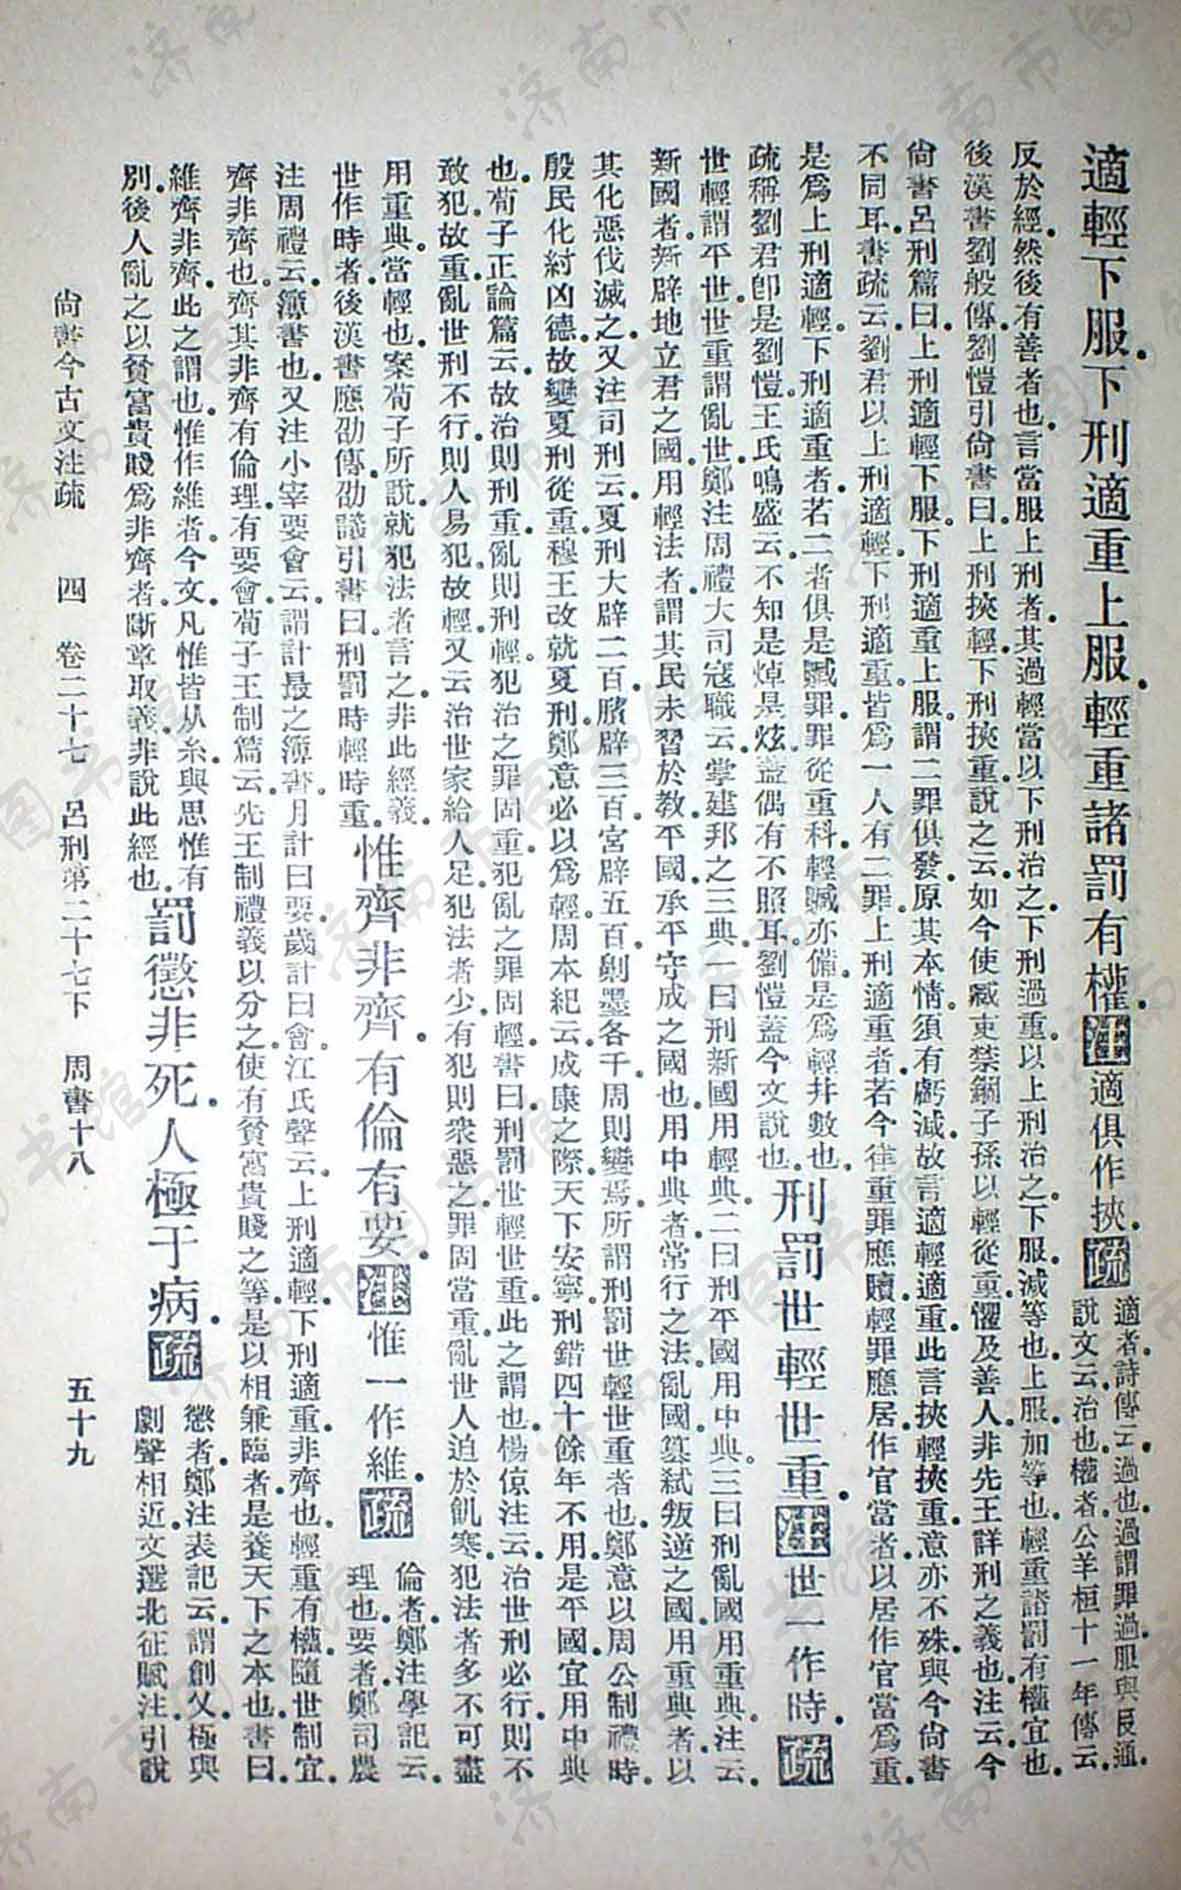 適輕下服下刑適重上服輕重諸罰有權注適俱作挾疏適者詩傳云過也過謂罪過服與𠬝通
說文云治也權者公羊桓十一年傳云
反於經然後有善者也言當服上刑者其過輕當以下刑治之下刑過重以上刑治之下服減等也上服加等也輕重諸罰有權宜也
後漢書劉般傳劉愷引尙書曰上刑挾輕下刑挾重說之云如今使臧吏禁錮子孫以輕從重懼及善人非先王詳刑之義也注云今
尙書呂刑篇曰上刑適輕下服下刑適重上服謂二罪俱發原其本情須有虧減故言適輕適重此言挾輕挾重意亦不殊與今尙書
不同耳書疏云劉君以上刑適輕下刑適重皆爲一人有二罪上刑適重者若今律重罪應贖輕罪應居作官當者以居作官當爲重
是爲上刑適輕下刑適重者若二者俱是贓罪罪從重科輕贓亦備是爲輕幷數也刑罰世輕世重注世一作時疏
疏稱劉君卽是劉愷王氏鳴盛云不知是焯是炫蓋偶有不照耳劉愷蓋今文說也
世輕謂平世世重謂亂世鄭注周禮大司寇職云掌建邦之三典一曰刑新國用輕典二曰刑平國用中典三曰刑亂國用重典注云
新國者新辟地立君之國用輕法者謂其民未習於教平國承平守成之國也用中典者常行之法亂國簒弑叛逆之國用重典者以
其化惡伐滅之又注司刑云夏刑大辟二百臏辟三百宮辟五百劓墨各千周則變焉所謂刑罰世輕世重者也鄭意以周公制禮時
殷民化紂凶德故變夏刑從重穆王改就夏刑鄭意必以爲輕周本紀云成康之際天下安寧刑錯四十餘年不用是平國宜用中典
也荀子正論篇云故治則刑重亂則刑輕犯治之罪固重犯亂之罪固輕書曰刑罰世輕世重此之謂也楊倞注云治世刑必行則不
敢犯故重亂世刑不行則人易犯故輕又云治世家給人足犯法者少有犯則衆惡之罪固當重亂世人迫於飢寒犯法者多不可盡
用重典當輕也案荀子所說就犯法者言之非此經義惟齊非齊有倫有要注惟一作維疏倫者鄭注學記云
世作時者後漢書應劭傳劭議引書曰刑罰時輕時重理也要者鄭司農
注周禮云簿書也又注小宰要會云謂計最之簿書月計曰要歲計曰會江氏聲云上刑適輕下刑適重非齊也輕重有權隨世制宜
齊非齊也齊其非齊有倫理有要會荀子王制篇云先王制禮義以分之使有貧富貴賤之等是以相兼臨者是養天下之本也書曰
維齊非齊此之謂也惟作維者今文凡惟皆从糸與思惟有罰懲非死人極于病疏懲者鄭注表記云謂創乂極與
別後人亂之以貧富貴賤爲非齊者斷章取義非說此經也劇聲相近文選北征賦注引說
尙書今古文注疏 四 卷二十七 呂刑第二十七下 周書十八 五十九